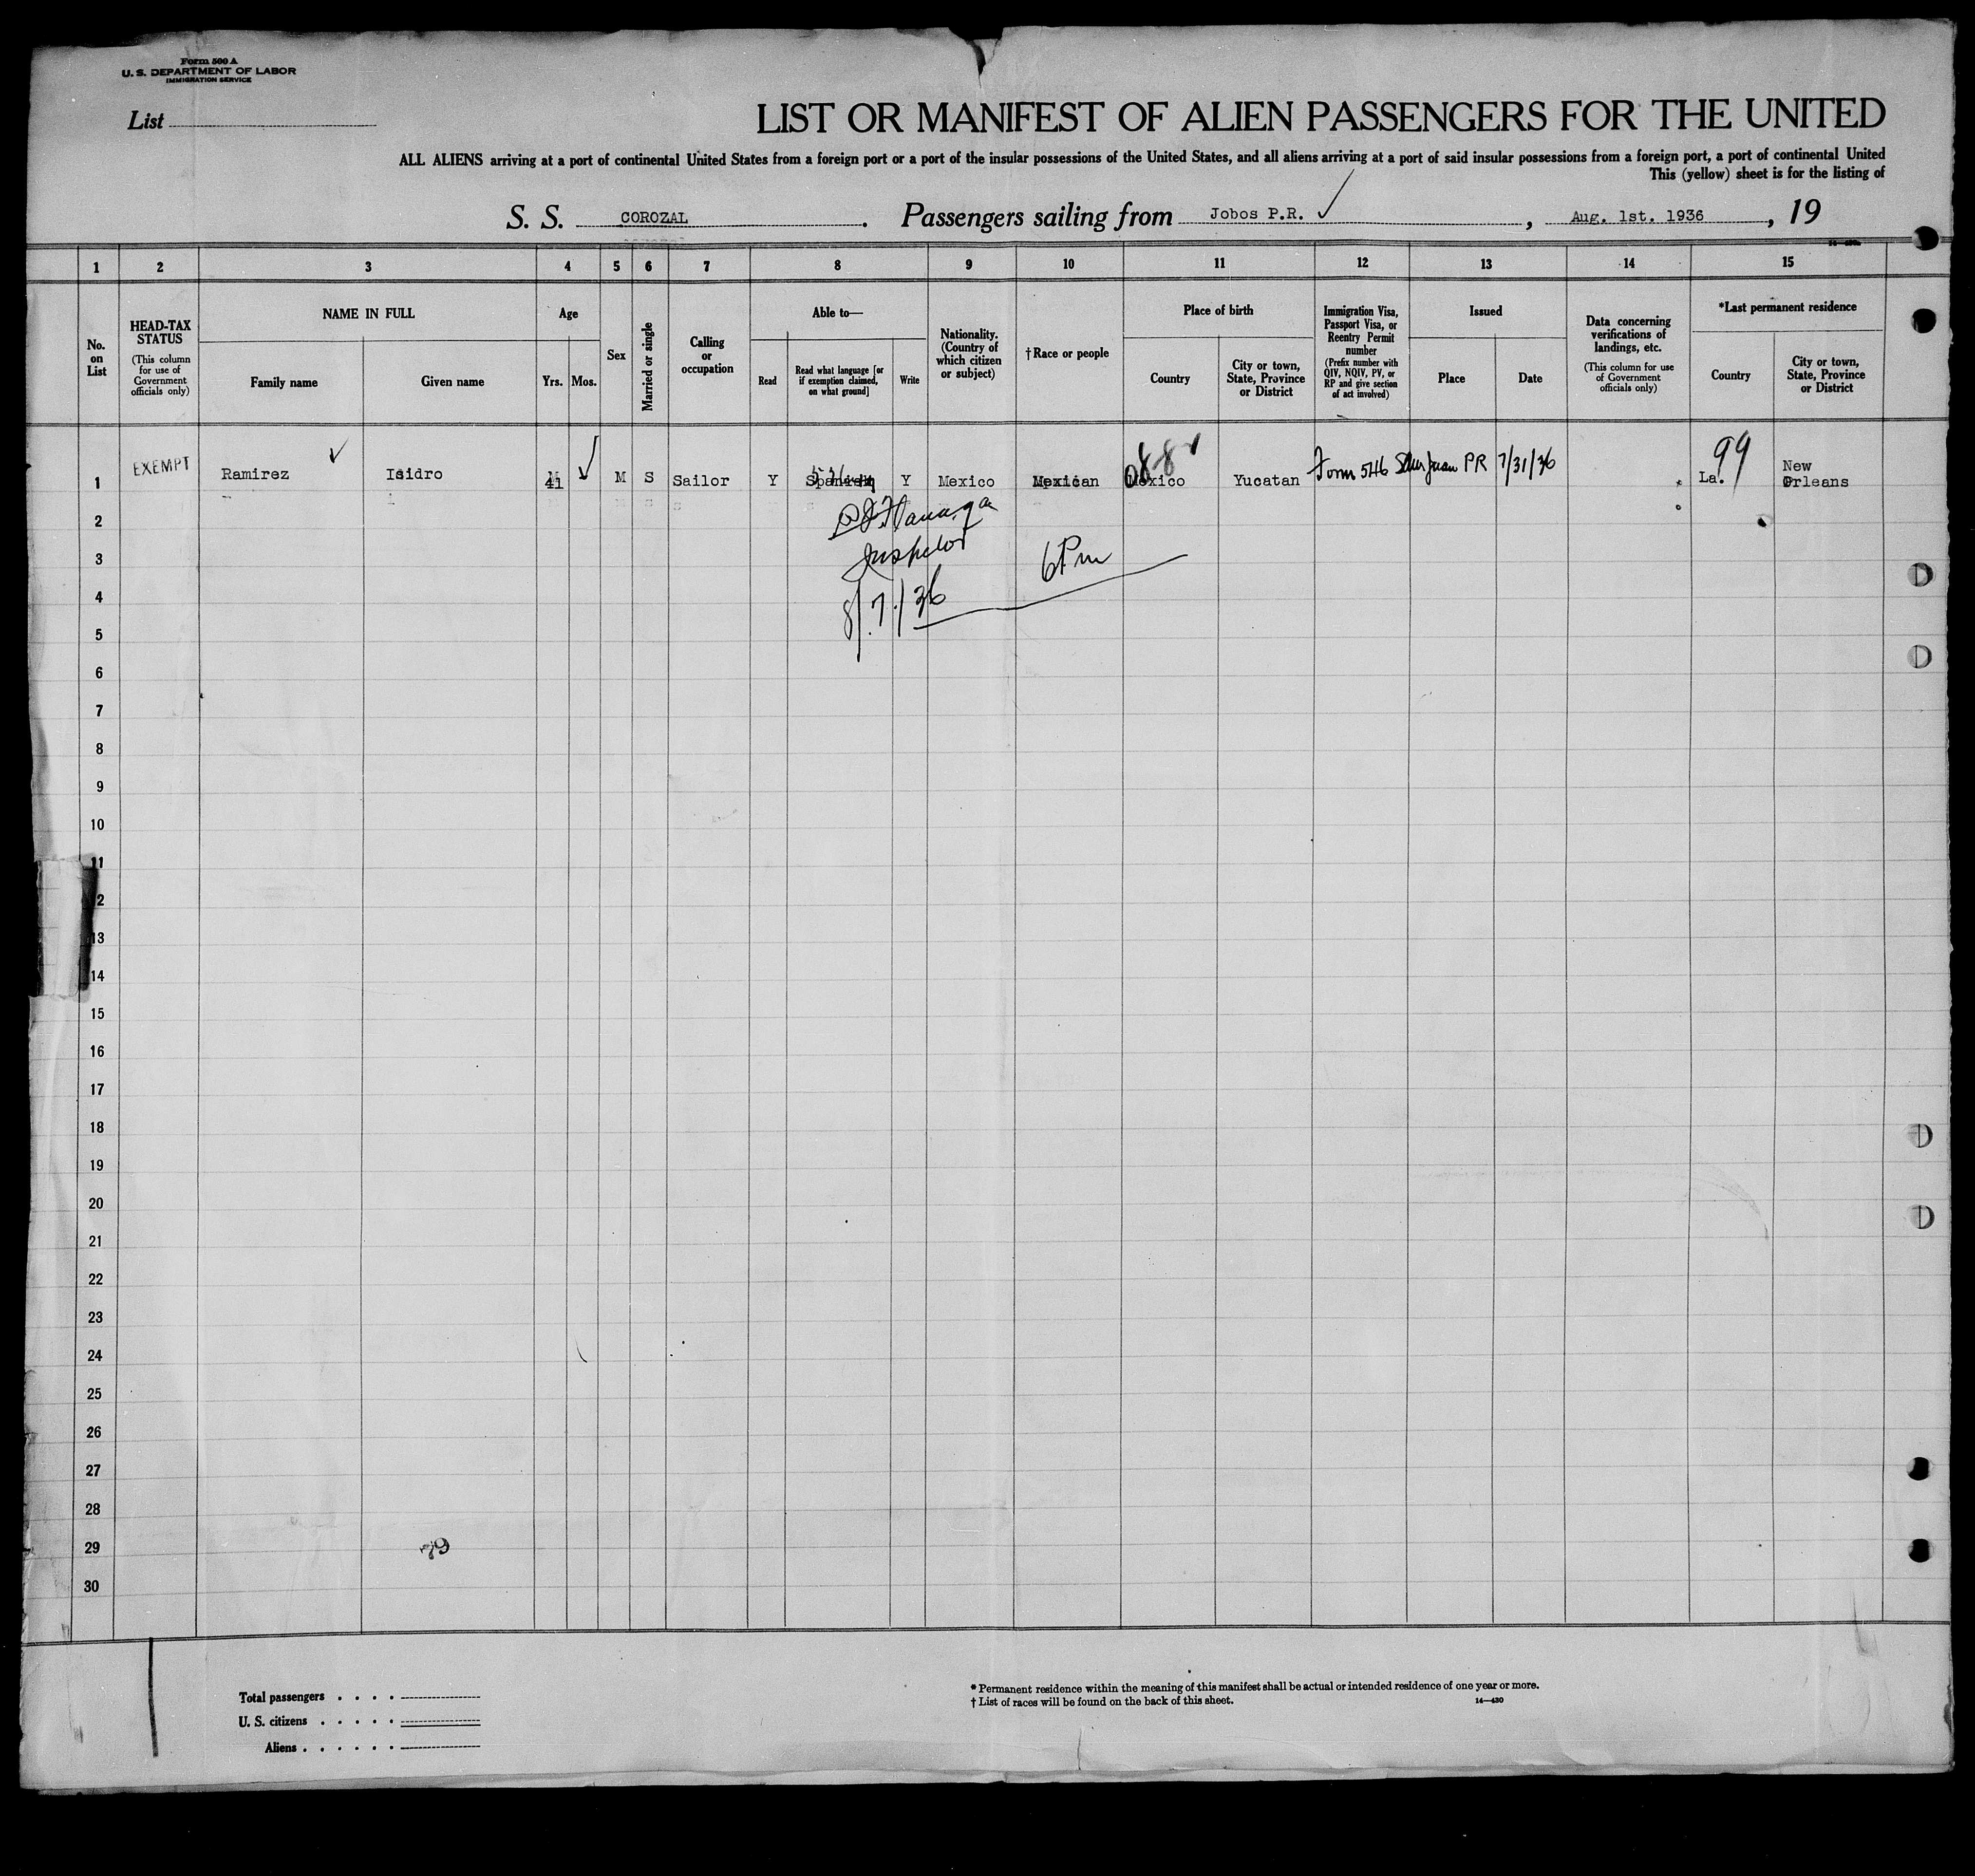 Form 500 A
U. S. DEPARTMENT OF LABOR
IMMIGRATION SERVICE
List
LIST OR MANIFEST OF ALIEN PASSENGERS FOR THE UNITED
ALL ALIENS arriving at a port of continental United States from a foreign port or a port of the insular possessions of the United States, and all aliens arriving at a port of said insular possessions from a foreign port, a port of continental United
This (yellow) sheet is for the listing of
S. S. COROZAL. Passengers sailing from Jobos P.R. ✓, Aug. 1st. 1936, 19
1 2 3 4 5 6 7 8 9 10 11 12 13 14 15
No. on List
HEAD-TAX STATUS
(This column for use of Government officials only)
NAME IN FULL
Family name
Given name
Age
Yrs. Mos.
Sex
Married or single
Calling or occupation
Able to—
Read
Read what language [or if exemption claimed, on what ground]
Write
Nationality. (Country of which citizen or subject)
†Race or people
Place of birth
Country
City or town, State, Province or District
Immigration Visa, Passport Visa, or Reentry Permit number
(Prefix number with QIV, NQIV, PV, or RP and give section of act involved)
Issued
Place
Date
Data concerning verifications of landings, etc.
(This column for use of Government officials only)
*Last permanent residence
Country
City or town, State, Province or District
1 EXEMPT Ramirez ✓ Isidro 41 ✓ M S Sailor Y Spanish Y Mexico Mexican Mexico Yucatan Form 546 San Juan PR 7/31/36 La. 99 New Orleans
2
Inspector
3
6 Pm
4
8/7/36
5
6
7
8
9
10
11
12
13
14
15
16
17
18
19
20
21
22
23
24
25
26
27
28
29
30
Total passengers . . . .
U. S. citizens . . . . .
Aliens . . . . . .
* Permanent residence within the meaning of this manifest shall be actual or intended residence of one year or more.
† List of races will be found on the back of this sheet. 14—430